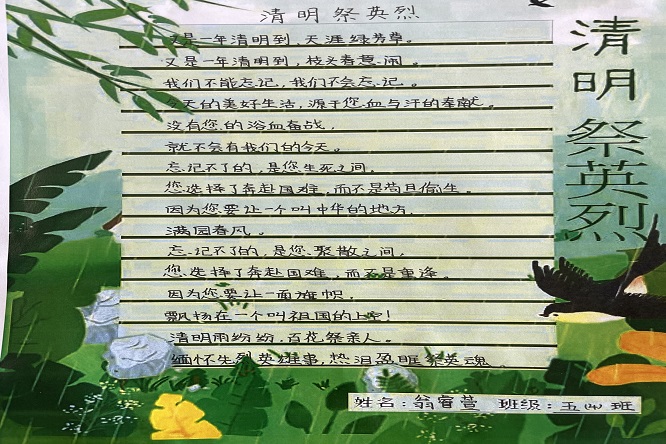 清明祭英烈
又是一年清明到，天涯绿芳草。
又是一年清明到，枝头春意闹。
我们不能忘记，我们不会忘记。
今天的美好生活，源于您血与汗的奉献。
没有您的浴血奋战，
就不会有我们的今天。
忘记不了的，是您生死之间，
您选择了奔赴国难，而不是苟且偷生。
因为您要让一个叫中华的地方，
满园春风。
忘记不了的，是您聚散之间，
您选择了奔赴国难，而不是重逢。
因为您要让一面旗帜，
飘扬在一个叫祖国的上空！
清明雨纷纷，百花祭亲人。
缅怀先烈英雄事，热泪盈眶祭英魂。
清明
祭英烈
姓名：翁睿萱 班级：五(4)班